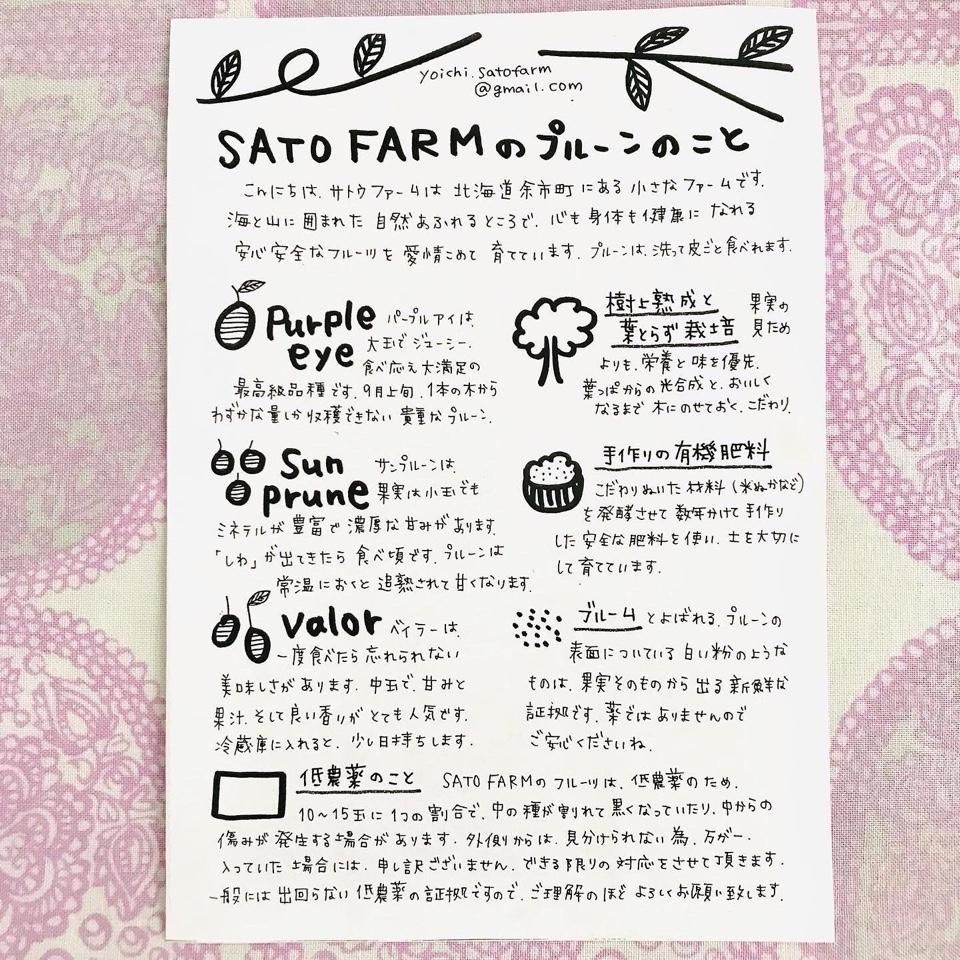 yoichi.satofarm
@gmail.com
SATO FARMのプルーンのこと
こんにちは、サトウファームは 北海道余市町にある小さなファームです。
海と山に囲まれた 自然あふれるところで、心も身体も健康に なれる
安心安全なフルーツを 愛情こめて 育てています。プルーンは、洗って皮ごと食べれます。
Purple
eye
パープルアイは、
大玉でジューシー、
食べ応え大満足の
最高級品種です。9月上旬、1本の木から
わずかな量しか収穫できない 貴重なプルーン。
Sun
prune
サンプルーンは、
果実は小玉でも
ミネラルが豊富で 濃厚な甘みがあります。
「しわ」が出てきたら 食べ頃です。プルーンは
常温におくと 追熟されて甘くなります。
valor
ベイラーは、
一度食べたら忘れられない
美味しさがあります。中玉で、甘みと
果汁、そして良い香りが とても人気です。
冷蔵庫に入れると、少し日持ちします。
樹上熟成と
葉とらず栽培
果実の
見ため
よりも、栄養と味を優先。
葉っぱからの光合成と、おいしく
なるまで 木にのせておく、こだわり。
手作りの有機肥料
こだわりぬいた材料（米ぬかなど）
を発酵させて 数年かけて手作り
した安全な肥料を使い、土を大切に
して育てています。
ブルーム とよばれる、プルーンの
表面についている白い粉のような
ものは、果実そのものから出る新鮮な
証拠です。薬ではありませんので
ご安心くださいね。
低農薬のこと SATO FARMのフルーツは、低農薬のため、
10〜15玉に1つの割合で、中の種が割れて黒くなっていたり、中からの
傷みが発生する場合があります。外側からは、見分けられない為、万が一、
入っていた場合には、申し訳ございません。できる限りの対応をさせて頂きます。
一般には出回らない 低農薬の証拠ですので、ご理解のほど よろしくお願い致します。